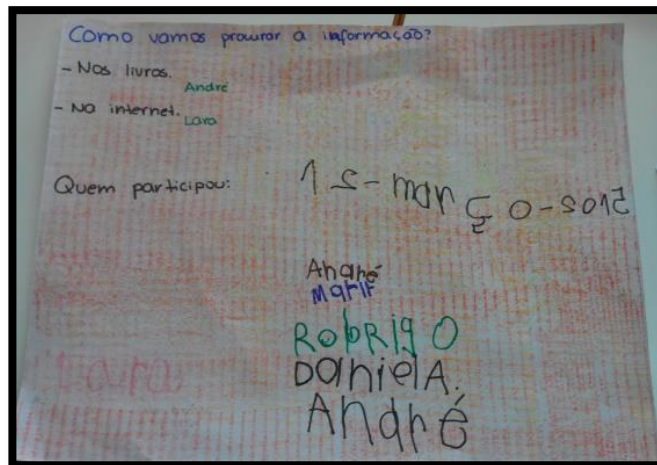 Como vamos procurar a informação?
- Nos livros.
André
- Na internet.
Lara
Quem participou:
12-março-2015
André
Marir
RobRigO
DanielA.
André